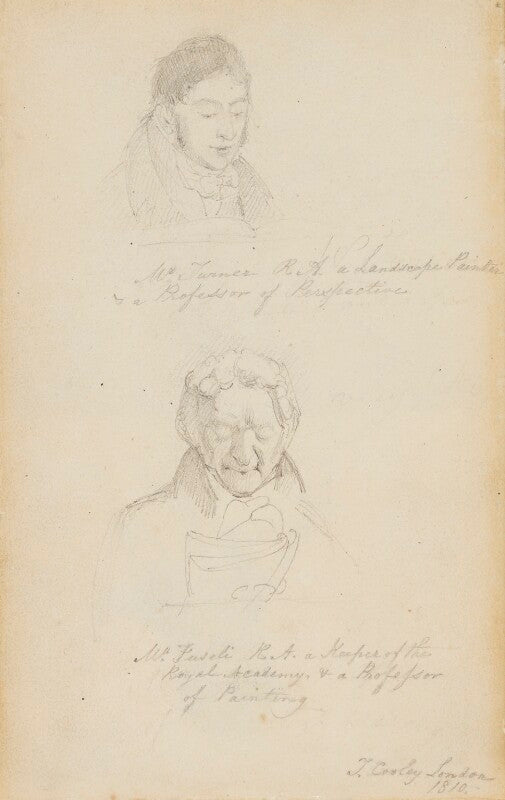 Mr. Turner R.A. a Landscape Painter
& a Professor of Perspective
Mr. Fuseli R.A. a Keeper of the
Royal Academy & a Professor
of Painting
T. Cooley London
1810.